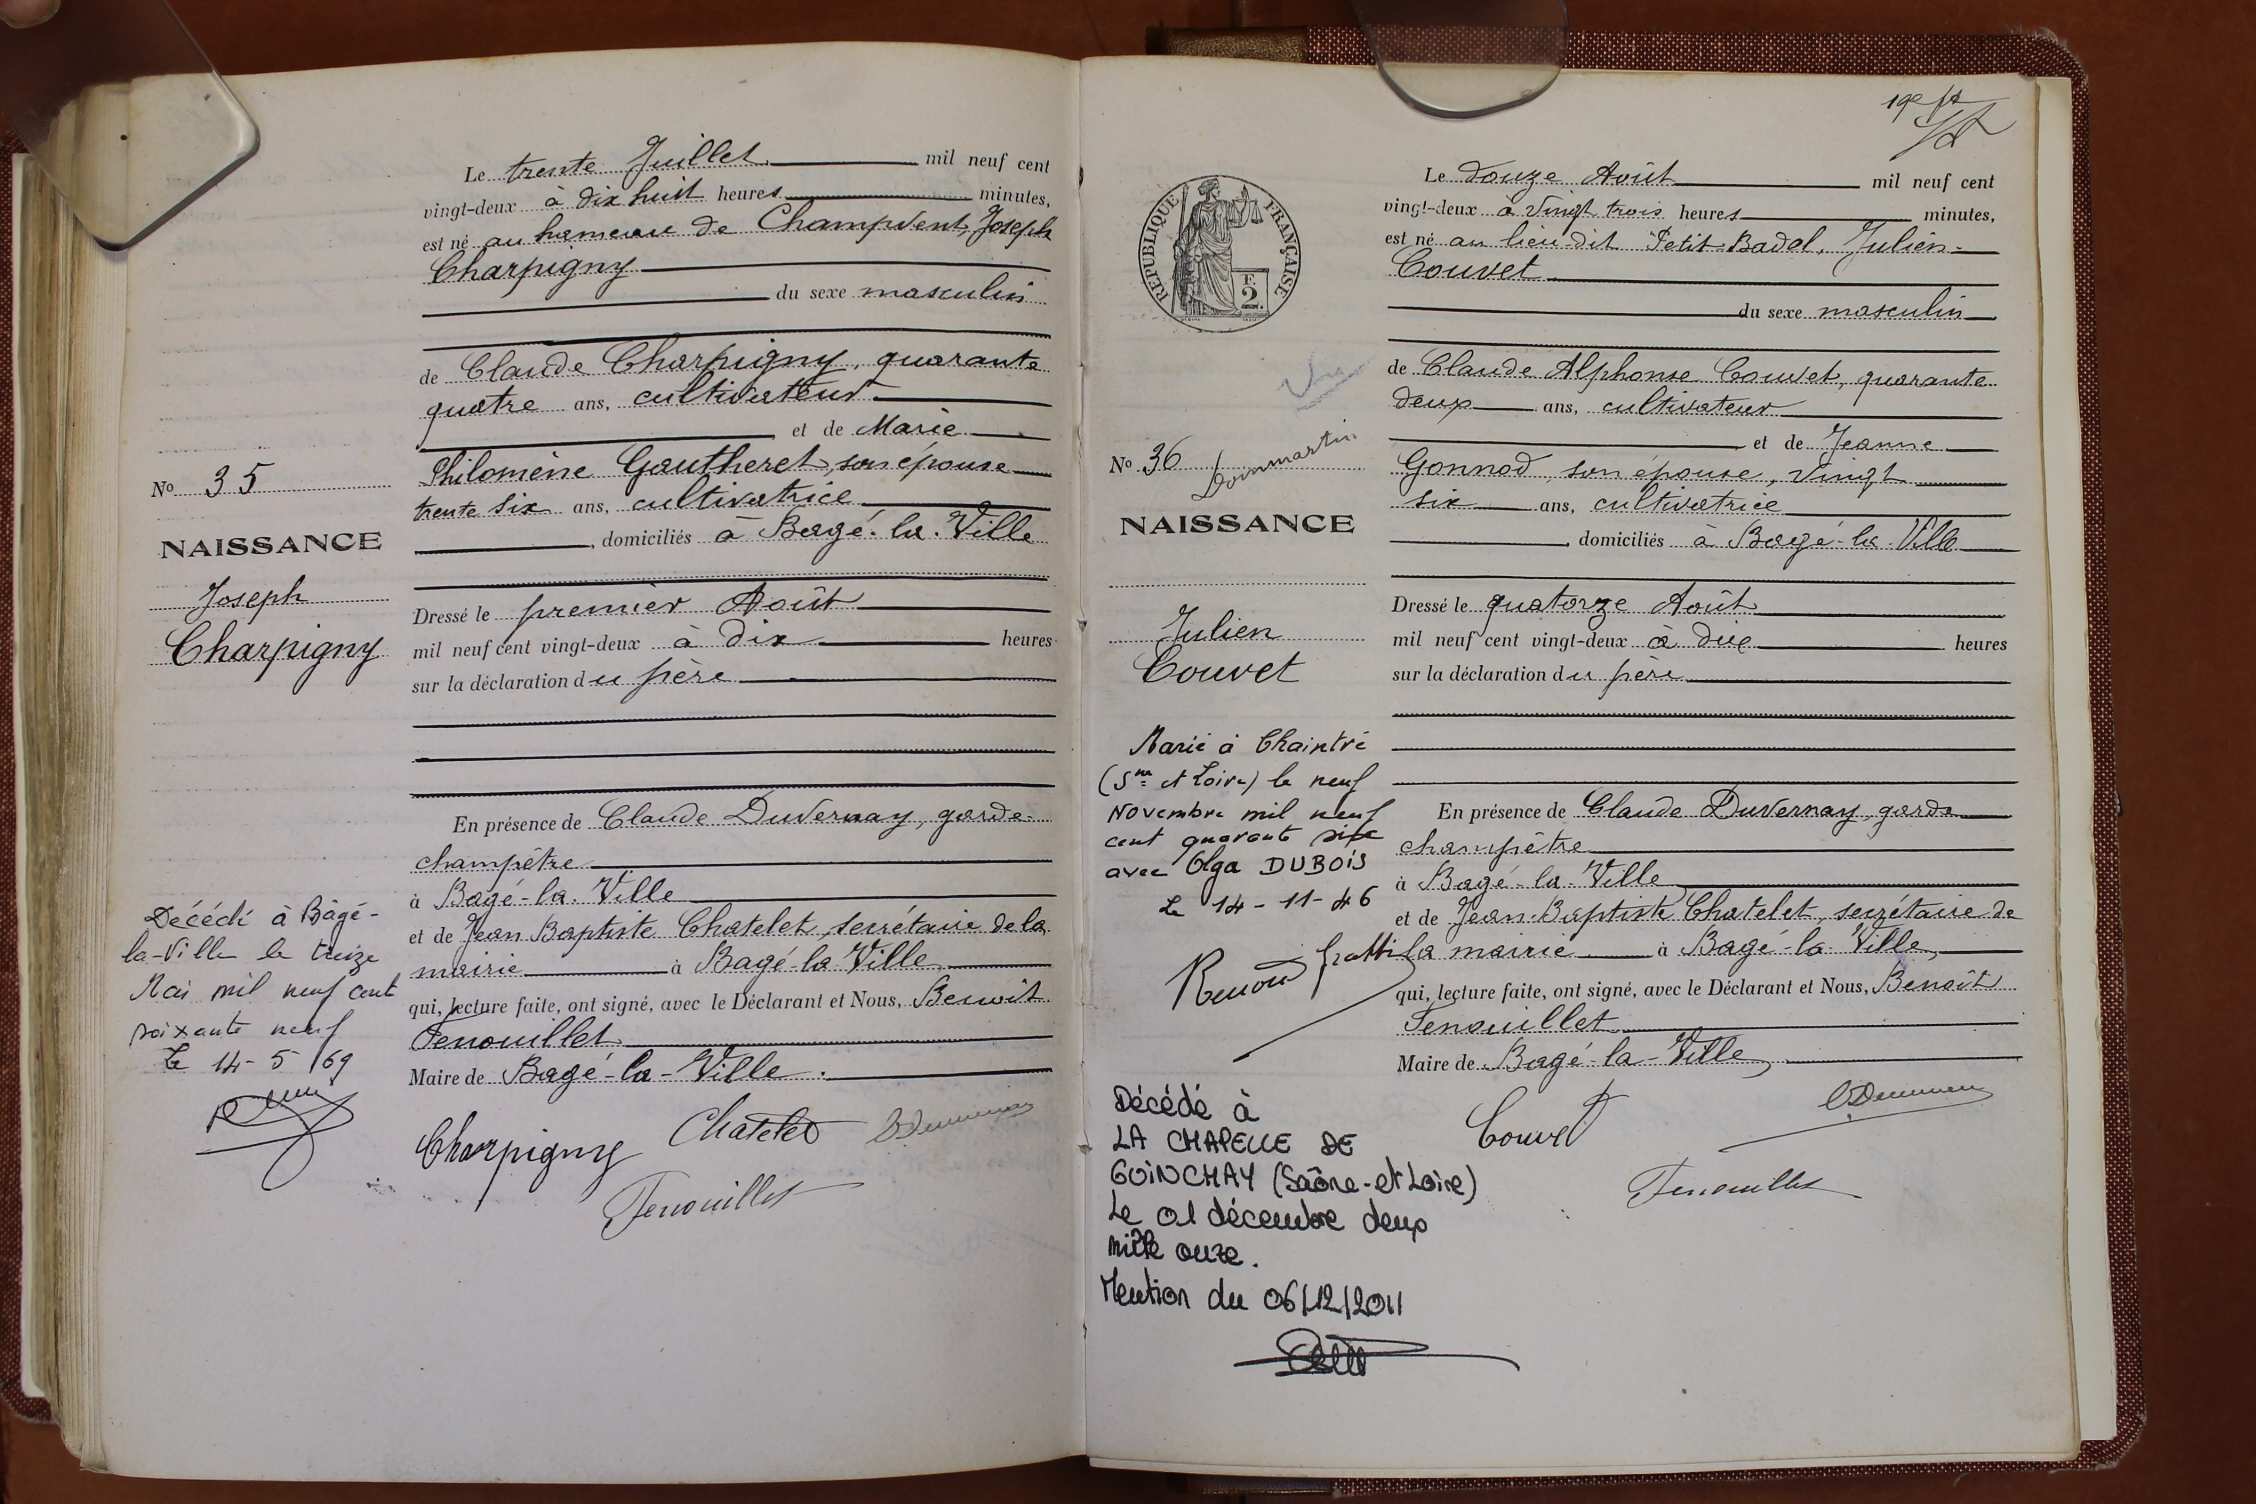 Le trente Juillet mil neuf cent
vingt-deux à dix huit heures minutes,
est né au hameau de Champvent, Joseph
Charpigny
du sexe masculin
de Claude Charpigny, quarante
quatre ans, cultivateur
et de Marie
Philomène Gautheret, son épouse
trente six ans, cultivatrice
, domiciliés à Bagé-la-Ville
No 35
NAISSANCE
Joseph
Charpigny
Dressé le premier Août
mil neuf cent vingt-deux à dix heures
sur la déclaration du père
En présence de Claude Duvernay, garde-
champêtre
à Bagé-la-Ville
et de Jean Baptiste Chatelet, secrétaire de la
mairie à Bagé-la-Ville
qui, lecture faite, ont signé, avec le Déclarant et Nous, Benoît
Fenouillet
Maire de Bagé-la-Ville.
Décédé à Bâgé-
la-Ville le treize
Mai mil neuf cent
soixante neuf
Le 14-5 69
Charpigny Chatelet C. Duvernay
Fenouillet
RÉPUBLIQUE FRANÇAISE
2 F.
Le douze Août mil neuf cent
vingt-deux à vingt trois heures minutes,
est né au lieu-dit Petit-Badel, Julien
Couvet
du sexe masculin
de Claude Alphonse Couvet, quarante
deux ans, cultivateur
et de Jeanne
Gonnod, son épouse, vingt
six ans, cultivatrice
, domiciliés à Bagé-la-Ville
No 36
Dommartin
NAISSANCE
Julien
Couvet
Dressé le quatorze Août
mil neuf cent vingt-deux à dix heures
sur la déclaration du père
En présence de Claude Duvernay, garde
champêtre
à Bagé-la-Ville
et de Jean-Baptiste Chatelet, secrétaire de
la mairie à Bagé-la-Ville,
qui, lecture faite, ont signé, avec le Déclarant et Nous, Benoît
Fenouillet
Maire de Bagé-la-Ville,
Marié à Chaintré
(Sne et Loire) le neuf
Novembre mil neuf
cent quarante six
avec Olga DUBOIS
Le 14-11-46
Décédé à
LA CHAPELLE DE
GUINCHAY (Saône-et-Loire)
Le 01 décembre deux
mille onze.
Mention du 06/12/2011
Couvet C. Duvernay
Fenouillet